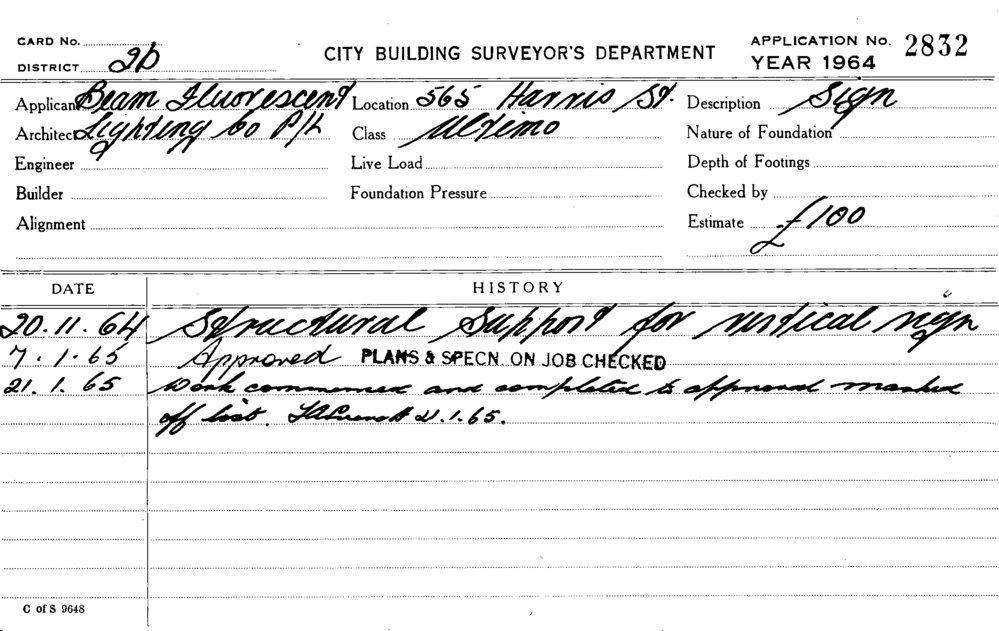 CARD No.
CITY BUILDING SURVEYOR'S DEPARTMENT
APPLICATION No. 2832
DISTRICT 2D
YEAR 1964
Applicant Beam Fluorescent Location 565 Harris St. Description Sign
Architect Lighting Co P/L Class Ultimo Nature of Foundation
Engineer Live Load Depth of Footings
Builder Foundation Pressure Checked by
Alignment Estimate £100
DATE HISTORY
20.11.64 Structural Support for vertical sign
7.1.65 Approved PLANS & SPECN. ON JOB CHECKED
21.1.65 Work commenced and completed to approval marked
off list. 21.1.65.
C of S 9648